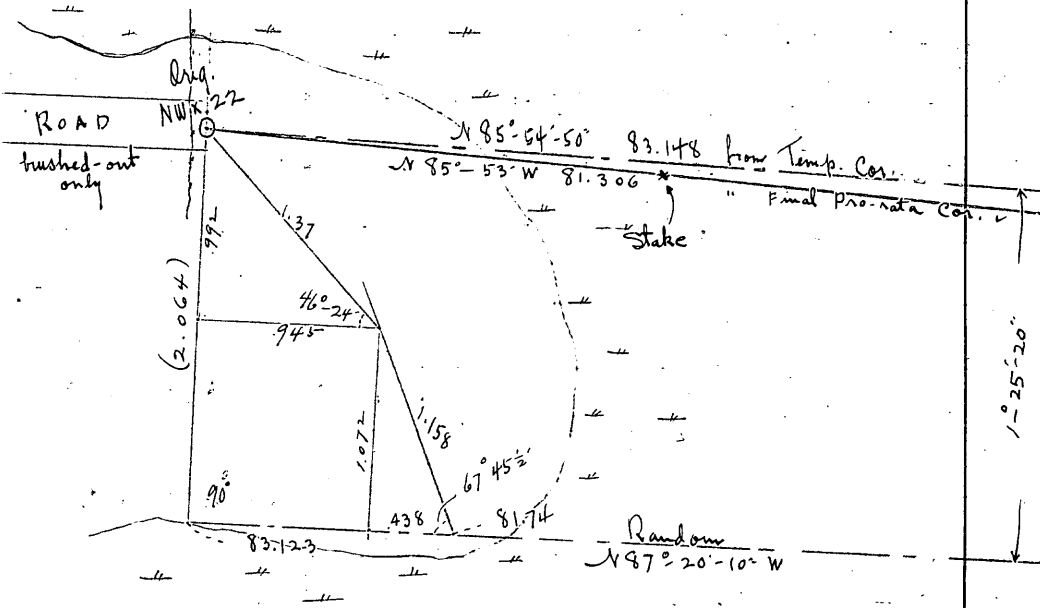 Orig.
NW x 22
ROAD
bushed-out
only
N 85°-54'-50" - 83.148 from Temp. Cor.
N 85°-53' W 81.306 " Final Pro-rata Cor.
Stake
.992
1.37
(2.064)
46°-24'
.945
1.072
1.158
67° 45½'
90°
.438
81.74
83.123
Random
N 87°-20'-10" W
1°-25'-20"